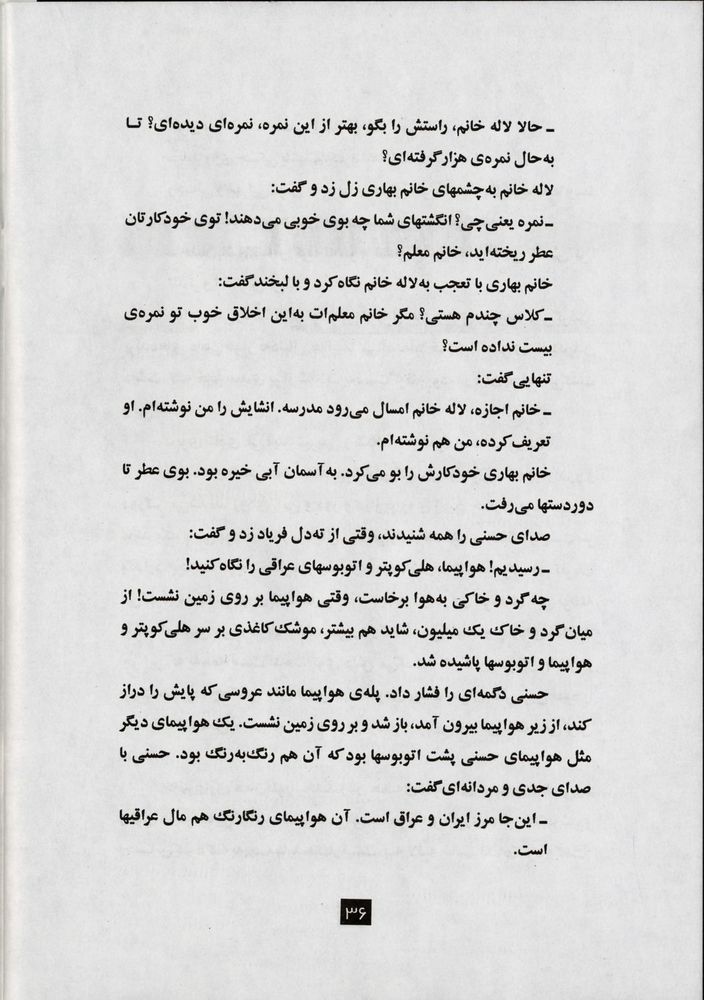 ـ حالا لاله خانم، راستش را بگو، بهتر از این نمره، نمره‌ای دیده‌ای؟ تـا
به‌حال نمره‌ی هزار گرفته‌ای؟
لاله خانم به‌چشمهای خانم بهاری زل زد و گفت:
ـ نمره یعنی‌چی؟ انگشتهای شما چه بوی خوبی می‌دهند! توی خودکارتان
عطر ریخته‌اید، خانم معلم؟
خانم بهاری با تعجب به‌لاله خانم نگاه کرد و با لبخند گفت:
ـ کلاس چندم هستی؟ مگر خانم معلم‌ات به‌این اخلاق خوب تو نمره‌ی
بیست نداده است؟
تنهایی گفت:
ـ خانم اجازه، لاله خانم امسال می‌رود مدرسه. انشایش را من نوشته‌ام. او
تعریف کرده، من هم نوشته‌ام.
خانم بهاری خودکارش را بو می‌کرد. به‌آسمان آبی خیره بود. بوی عطر تا
دوردستها می‌رفت.
صدای حسنی را همه شنیدند، وقتی از ته‌دل فریاد زد و گفت:
ـ رسیدیم! هواپیما، هلی‌کوپتر و اتوبوسهای عراقی را نگاه کنید!
چه گرد و خاکی به‌هوا برخاست، وقتی هواپیما بر روی زمین نشست! از
میان گرد و خاک یک میلیون، شاید هم بیشتر، موشک کاغذی بر سر هلی‌کوپتر و
هواپیما و اتوبوسها پاشیده شد.
حسنی دگمه‌ای را فشار داد. پله‌ی هواپیما مانند عروسی که پایش را دراز
کند، از زیر هواپیما بیرون آمد، باز شد و بر روی زمین نشست. یک هواپیمای دیگر
مثل هواپیمای حسنی پشت اتوبوسها بود که آن هم رنگ‌به‌رنگ بود. حسنی با
صدای جدی و مردانه‌ای گفت:
ـ این‌جا مرز ایران و عراق است. آن هواپیمای رنگارنگ هم مال عراقیها
است.
۳۶